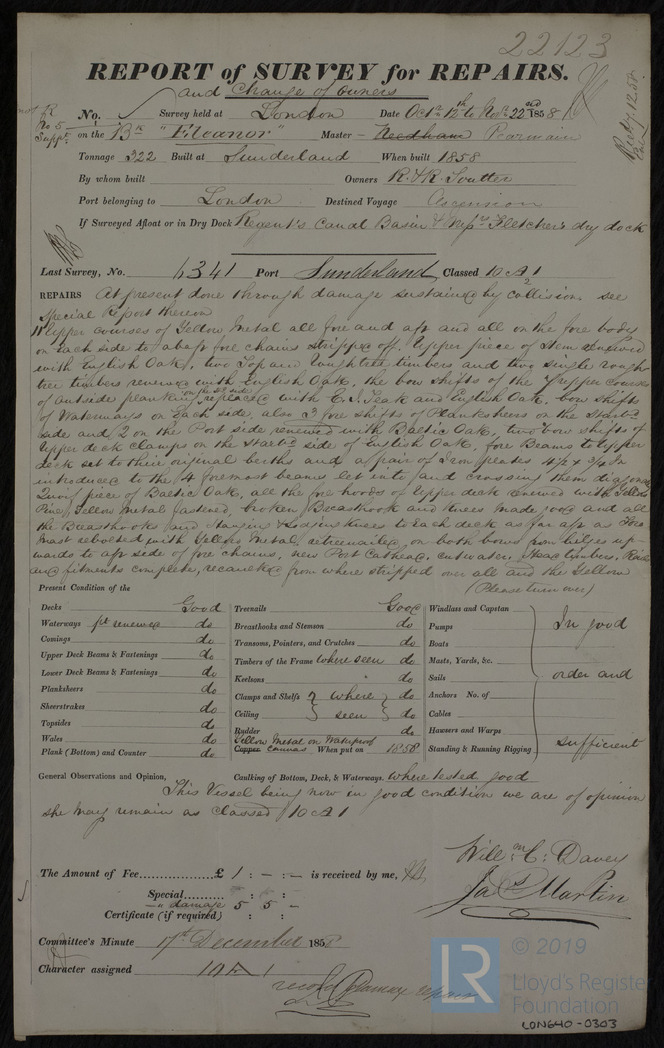 22123
REPORT of SURVEY for REPAIRS.
and Change of owners
No. Survey held at London Date Octr. 12th to Novr. 22nd 1858
No 5 Suppt. on the Bk "Eleanor" Master Needham Pearmain
Tonnage 322 Built at Sunderland When built 1858
By whom built Owners R. & R. Soutter
Port belonging to London Destined Voyage Ascension
If Surveyed Afloat or in Dry Dock Regent's Canal Basin & Fletcher's dry dock
Last Survey, No. 6341 Port Sunderland Classed 10 A 1
REPAIRS At present done through damage sustained by collision. see
Special Report thereon
Upper courses of Yellow Metal all fore and aft and all on the fore body
on each side to abaft fore chains stripped off, Upper piece of Stem renewed
with English Oak, two Topaid roughtree timbers and two single rough
tree timbers renewed with English Oak, the bow shifts of the upper courses
of outside planking replaced with E.I. Teak and English Oak, bow shifts
of Waterways on Each side, also 3 fore shifts of Planksheers on the Starbd.
side and 2 on the Port side renewed with Baltic Oak, two bow shifts of
Upper deck clamps on the Starbd side of English Oak, fore Beams to Upper
deck set to their original births and a pair of Iron plates 4½ x ¾ In
introduced to the 4 foremost beams let into and crossing them diagonal
piece of Baltic Oak, all the fore hoods of Upper deck renewed with Yellow
Pine, Yellow Metal fastened, broken Breasthook and knees made good and all
the Breasthooks and Hanging & Lodging knees to Each deck as far aft as Fore
Mast rebolted with Yellow Metal, retreenailed on both bows from helpes up-
wards to aft side of fore chains, new Port Cathead, cutwater, Head timbers, Rails
and fitments complete, recaulked from where stripped over all and the Yellow
(Please turn over)
Present Condition of the
Decks Good
Waterways pt renewed do
Comings do
Upper Deck Beams & Fastenings do
Lower Deck Beams & Fastenings do
Planksheers do
Sheerstrakes do
Topsides do
Wales do
Plank (Bottom) and Counter do
Treenails Good
Breasthooks and Stemson do
Transoms, Pointers, and Crutches do
Timbers of the Frame where seen do
Keelsons do
Clamps and Shelfs where do
Ceiling seen do
Rudder do
Yellow Metal on Waterproof
Copper canvas When put on 1858
Windlass and Capstan
Pumps In good
Boats
Masts, Yards, &c.
Sails order and
Anchors No. of
Cables
Hawsers and Warps
Standing & Running Rigging sufficient
General Observations and Opinion, Caulking of Bottom, Deck, & Waterways. where tested good
This Vessel being now in good condition we are of opinion
she may remain as classed 10 A 1
Willm. C. Davey
Jas. Martin
The Amount of Fee £ 1 : - : - is received by me,
Special : :
damage 5 5 -
Certificate (if required) : :
Committee's Minute 17th December 1858
Character assigned 10 A 1
© 2019
LR
Lloyd's Register
Foundation
LON640-0303